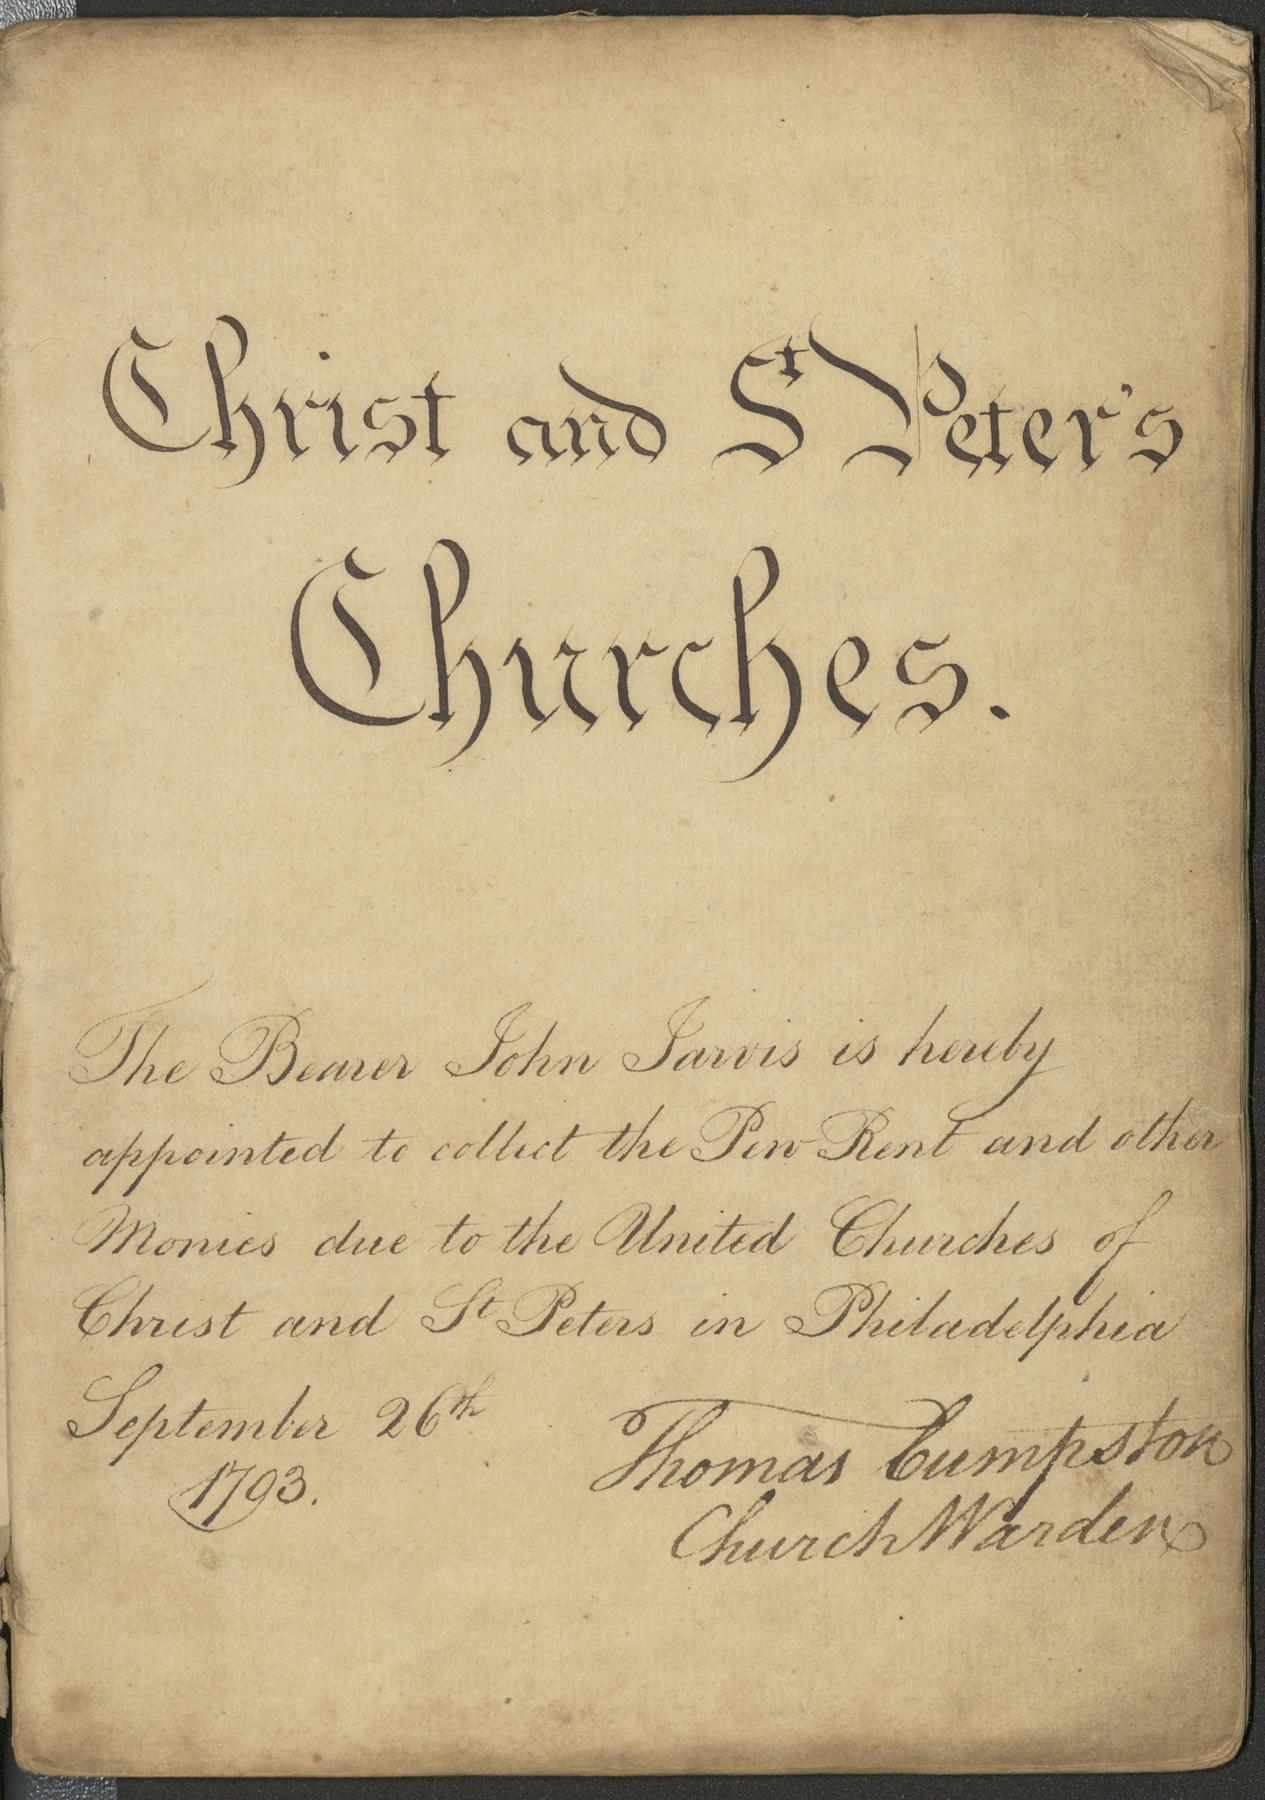 Christ and St Peter's
Churches.
The Bearer John Jarvis is hereby
appointed to collect the Pew Rent and other
Monies due to the United Churches of
Christ and St Peters in Philadelphia
September 26th
1793.
Thomas Cumpston
Church Warden